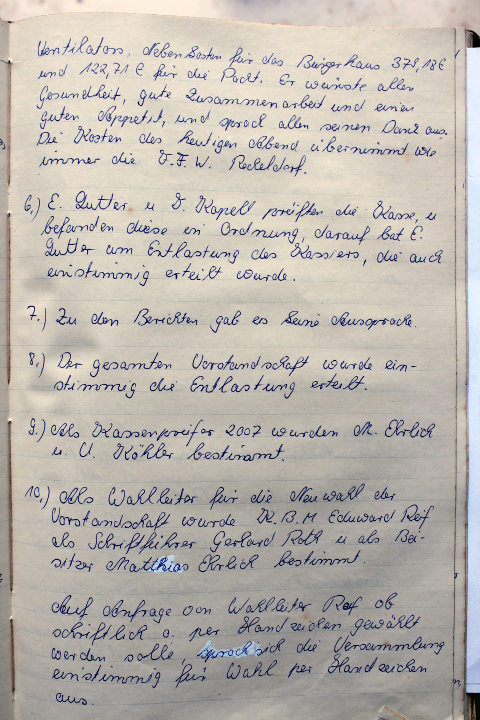 Ventilators, Nebenkosten für das Bürgerhaus 379,18 €
und 122,71 € für die Pacht. Er wünste allen
Gesundheit, gute Zusammenarbeit und einen
guten Appetit, und sprach allen seinen Dank aus.
Die Kosten des heutigen Abend übernimmt wie
immer die V.F.W. Reckeldorf.
6.) E. Lutter u D. Kapell prüften die Kasse, u
befanden diese in Ordnung, darauf bat E.
Lutter um Entlastung des Kassiers, die auch
einstimmig erteilt wurde.
7.) Zu den Berichten gab es keine Aussprache.
8.) Der gesamten Vorstandschaft wurde ein-
stimmig die Entlastung erteilt.
9.) Als Kassenprüfer 2007 wurden M. Ehrlich
u. U. Köhler bestimmt.
10.) Als Wahlleiter für die Neuwahl der
Vorstandschaft wurde K.B.M Eduward Reif
als Schriftführer Gerhard Roth u als Bei-
sitzer Matthias Ehrlich bestimmt.
Auf Anfrage von Wahlleiter Reif ob
schriftlich o. per Handzeichen gewählt
werden solle, sprach sich die Versammlung
einstimmig für Wahl per Handzeichen
aus.